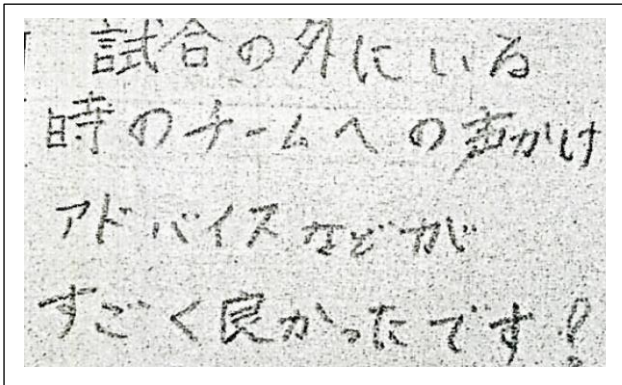 試合の外にいる
時のチームへの声かけ
アドバイスなどが
すごく良かったです!